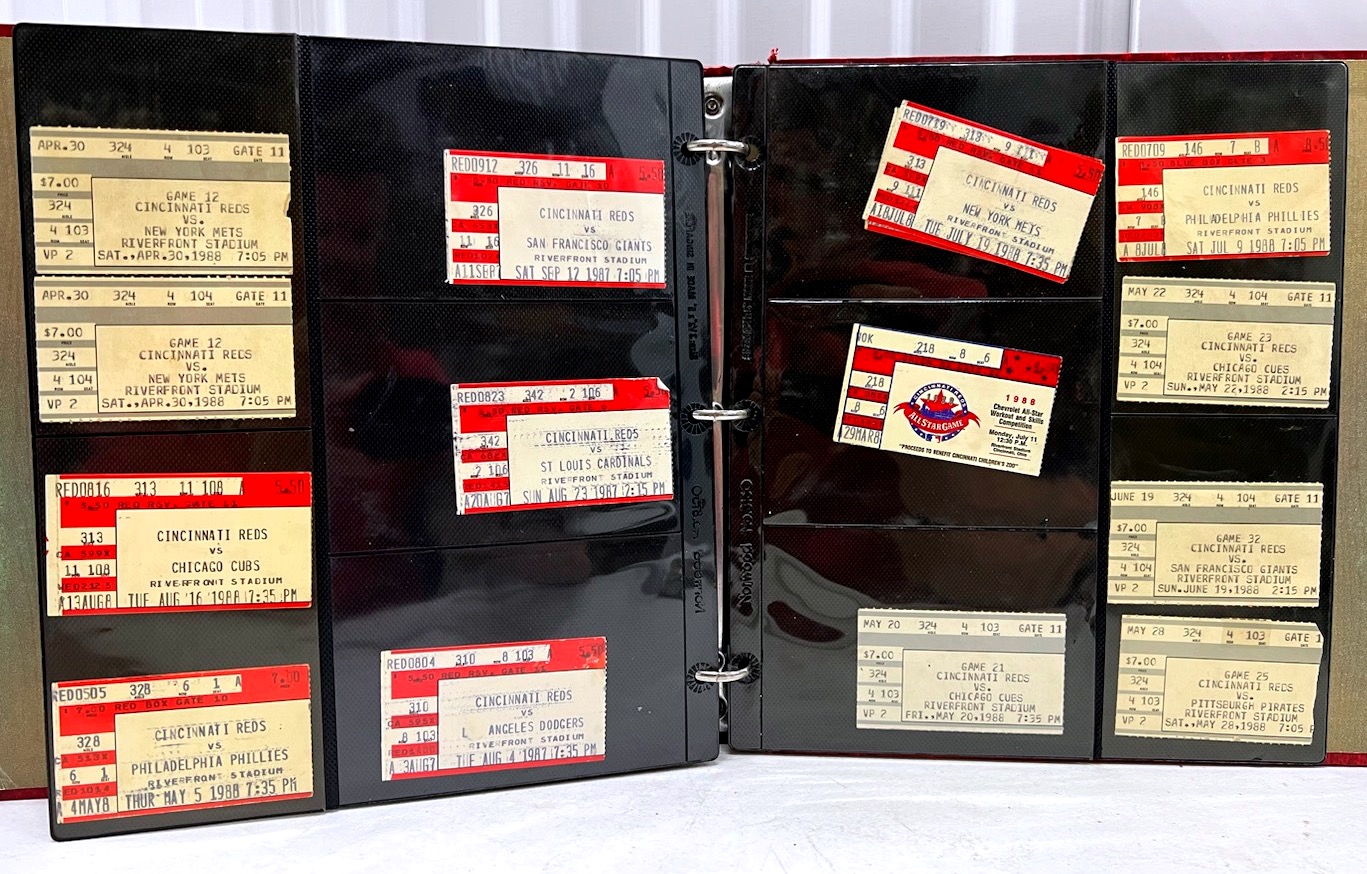 APR.30 324 4 103 GATE 11
$7.00
324
4 103
VP 2
GAME 12
CINCINNATI REDS
VS.
NEW YORK METS
RIVERFRONT STADIUM
SAT.,APR.30,1988 7:05 PM
APR.30 324 4 104 GATE 11
$7.00
324
4 104
VP 2
GAME 12
CINCINNATI REDS
VS.
NEW YORK METS
RIVERFRONT STADIUM
SAT.,APR.30,1988 7:05 PM
RED0816 313 11 108 A 5.50
5.50 RED RSV. GATE 11
313
CA 599X
11 108
A13AUG8
CINCINNATI REDS
VS
CHICAGO CUBS
RIVERFRONT STADIUM
TUE AUG 16 1988 7:35 PM
RED0505 328 6 1 A 7.00
7.50 RED BOX GATE 10
328
6 1
4MAY8
CINCINNATI REDS
VS
PHILADELPHIA PHILLIES
RIVERFRONT STADIUM
THUR MAY 5 1988 7:35 PM
RED0912 326 11 16 A 5.50
5.50 RED RSV. GATE 10
326
11 16
A11SEP7
CINCINNATI REDS
VS
SAN FRANCISCO GIANTS
RIVERFRONT STADIUM
SAT SEP 12 1987 7:05 PM
RED0823 342 2 106
342
2 106
A20AUG7
CINCINNATI REDS
VS
ST LOUIS CARDINALS
RIVERFRONT STADIUM
SUN AUG 23 1987 2:15 PM
RED0804 310 8 103 A 5.50
5.50 RED RSV. GATE 11
310
8 103
A 3AUG7
CINCINNATI REDS
VS
L ANGELES DODGERS
RIVERFRONT STADIUM
TUE AUG 4 1987 7:35 PM
RED0719 318 9 111
313
9 111
A18JUL8
CINCINNATI REDS
VS
NEW YORK METS
RIVERFRONT STADIUM
TUE JULY 19 1988 7:35 PM
218 8 6
218
8 6
29MAR8
CINCINNATI REDS
ALL STAR GAME
1988
Chevrolet All-Star
Workout and Skills
Competition
Monday, July 11
12:30 P.M.
Riverfront Stadium
Cincinnati, Ohio
"PROCEEDS TO BENEFIT CINCINNATI CHILDREN'S ZOO"
MAY 20 324 4 103 GATE 11
$7.00
324
4 103
VP 2
GAME 21
CINCINNATI REDS
VS.
CHICAGO CUBS
RIVERFRONT STADIUM
FRI.,MAY 20,1988 7:35 PM
RED0709 146 7 8 A 8.50
BLUE BOX GATE 3
146
7
A 8JUL8
CINCINNATI REDS
VS
PHILADELPHIA PHILLIES
RIVERFRONT STADIUM
SAT JUL 9 1988 7:05 PM
MAY 22 324 4 104 GATE 11
$7.00
324
4 104
VP 2
GAME 23
CINCINNATI REDS
VS.
CHICAGO CUBS
RIVERFRONT STADIUM
SUN.,MAY 22,1988 2:15 PM
JUNE 19 324 4 104 GATE 11
$7.00
324
4 104
VP 2
GAME 32
CINCINNATI REDS
VS.
SAN FRANCISCO GIANTS
RIVERFRONT STADIUM
SUN.JUNE 19,1988 2:15 PM
MAY 28 324 4 103 GATE 1
$7.00
324
4 103
VP 2
GAME 25
CINCINNATI REDS
VS.
PITTSBURGH PIRATES
RIVERFRONT STADIUM
SAT.,MAY 28,1988 7:05